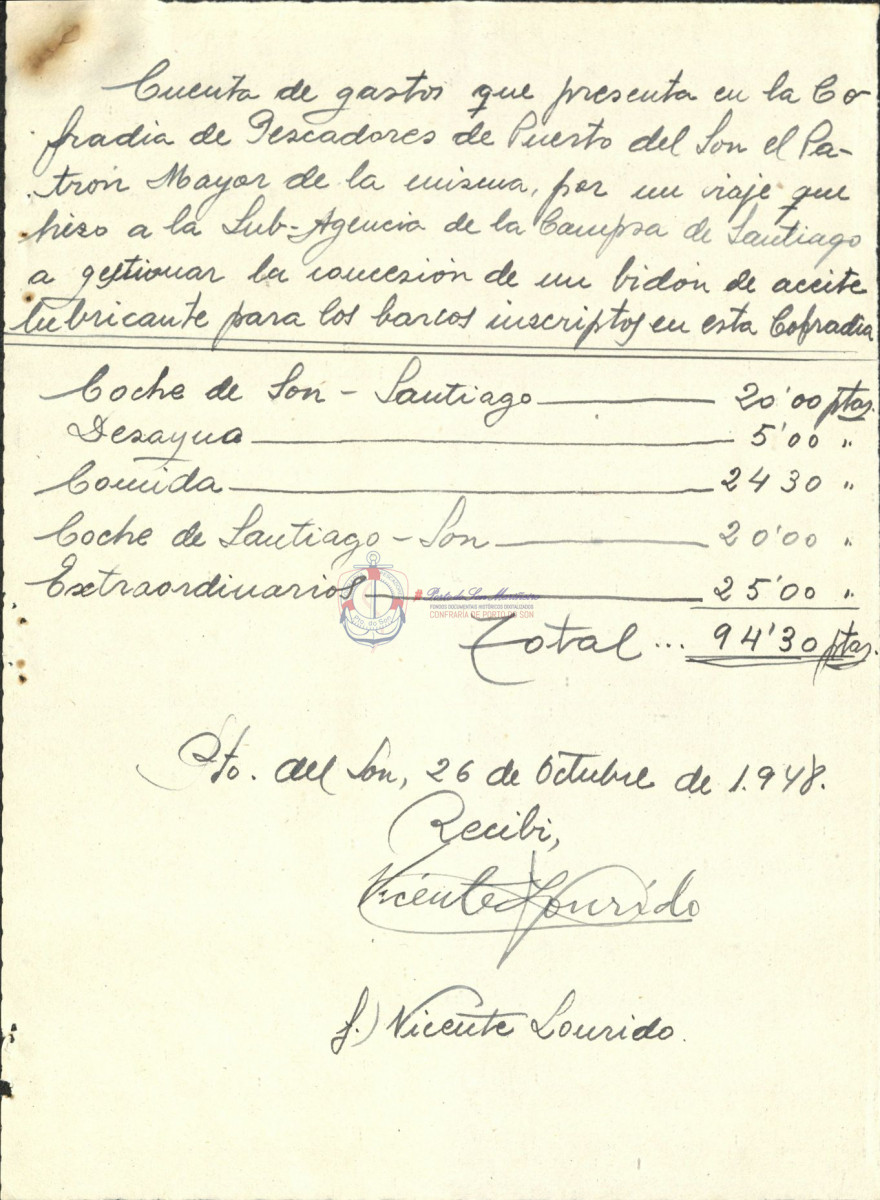 Cuenta de gastos que presenta en la Co-
fradia de Pescadores de Puerto del Son el Pa-
tron Mayor de la misma, por un viaje que
hizo a la Sub-Agencia de la Campsa de Santiago
a gestionar la concesión de un bidón de aceite
lubricante para los barcos inscriptos en esta Cofradia
Coche de Son - Santiago 20'00 ptas.
Desayuno 5'00 "
Comida 24 30 "
Coche de Santiago - Son 20'00 "
Extraordinarios 25'00 "
Pto. do Son
FONDOS DOCUMENTAIS HISTÓRICOS DIXITALIZADOS
CONFRARÍA DE PORTO DO SON
Total ... 94'30 ptas.
Pto. del Son, 26 de Octubre de 1.948.
Recibi,
Vicente Lourido
f.) Vicente Lourido.